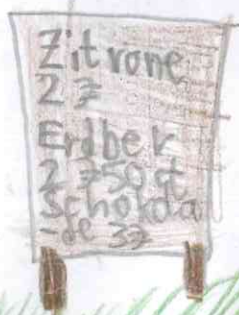 Zitrone
2 F
Erdber
2 F 50 ct
Schokola
-de 3F